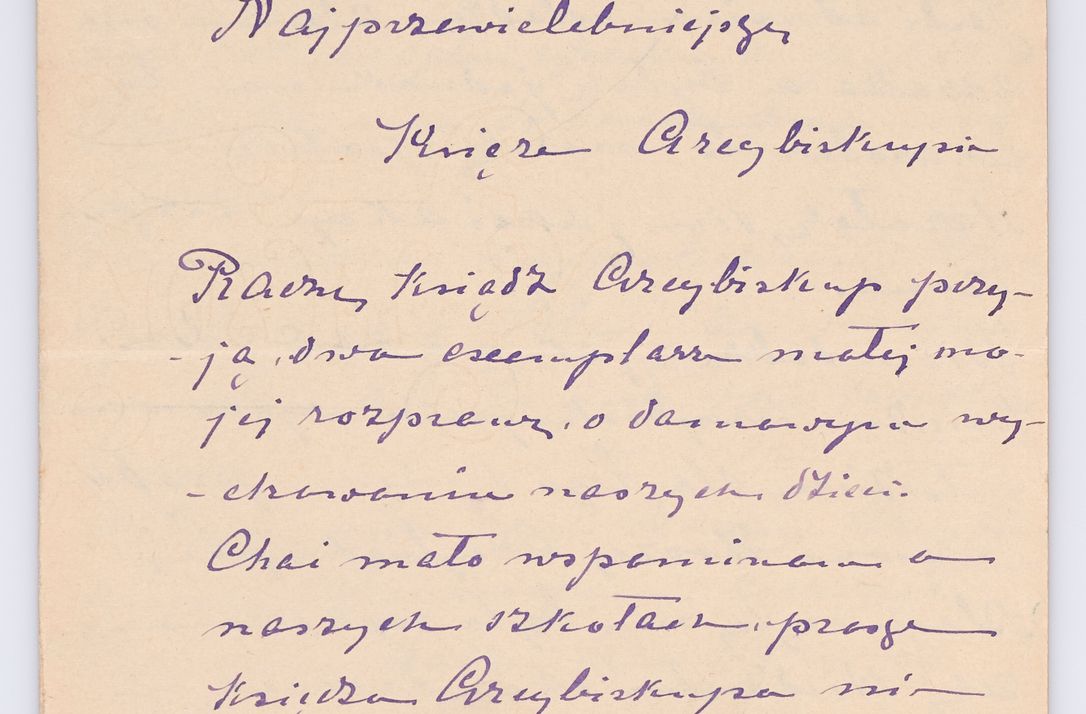 Najprzewielebniejszy
Księże Arcybiskupie
Raczy Ksiądz Arcybiskup przy-
-ją dwa exemplarze małej mo-
jej rozprawy o domowym wy-
-chowaniu naszych dzieci.
Choi mało wspominam o
naszych szkołach, proszę
Księdza Arcybiskupa nie